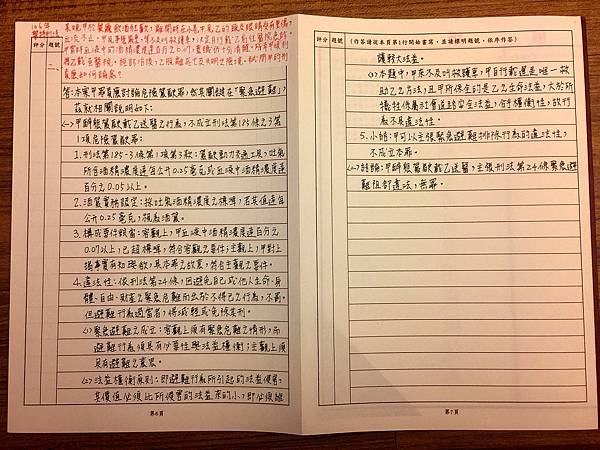 106年
警特刑法
某晚甲於餐廳飲酒狂歡，離開時在不意中見乙的臉及眼睛受有重傷，
血流不止，甲見事態嚴重，等不及叫救護車，決定自行載乙前往醫院急診，
甲當時血液中的酒精濃度達百分之0.07，意識仍十分清醒。
載至醫院，經診治後，乙脫離死亡及失明之險境。試問甲的刑
責應如何論處？
評分
題號
二、
答：本案甲罪責應討論危險駕駛罪，欲其關鍵在「緊急避難」，
茲就相關說明如下：
(一)甲酒醉態駕駛載乙送醫之行為，不成立刑法第185條之3第
1項危險駕駛罪：
1.刑法第185-3條第1項第3款：駕駛動力交通工具，吐氣
所含酒精濃度達每公升0.25毫克或血液中酒精濃度達
百分之0.05以上。
2.酒駕實務認定：採吐氣酒精濃度之標準，若其值達每
公升0.25毫克，視為酒駕。
3.構成要件該當：客觀上，甲血液中酒精濃度達百分之
0.07以上，已超標準，符合客觀之要件；主觀上，甲對上
揭事實有知與欲，具本罪之故意，符合主觀之要件。
4.違法性：依刑法第24條，因避免自己或他人生命、身
體、自由、財產之緊急危難而出於不得已之行為，不罰。
但避難行為過當者，得減輕或免除其刑。
(1)緊急避難之成立：客觀上須有緊急危難之情形，而
避難行為須具有必要性與法益權衡；主觀上須
具有避難之意思。
(2)法益權衡原則：即避難行為所引起的法益侵害，
其價值必須比所侵害的法益來的小，即必須維
第6頁
評分
題號
(作答請從本頁第1行開始書寫，並請標明題號，依序作答)
護較大法益。
(3)本題中，甲來不及叫救護車，甲自行載送是唯一救
助乙之方法，且甲所保全的是乙之生命法益，大於所
犧牲保屬社會道路安全法益，合乎權衡性，故行
為不具違法性。
5.小結：甲可以主張緊急避難排除行為的違法性，
不成立本罪。
(二)結論：甲醉態駕駛載乙送醫，主張刑法第24條緊急避
難阻卻違法，無罪。
第7頁